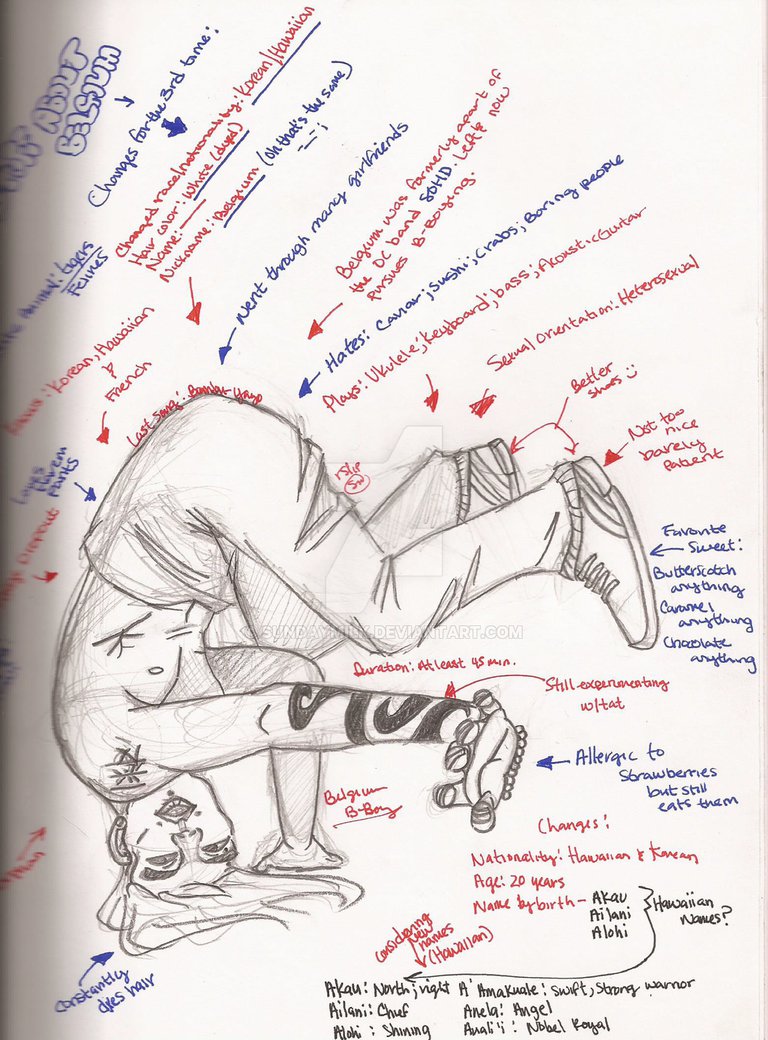 ABOUT
BELGIUM
Changes for the 3rd time:
Changed race/nationality: Korean/Hawaiian
Hair color: White (dyed)
Name: —
Nickname: Belgium (oh that's the same)
Went through many girlfriends
Belgium was formerly apart of
the DC band SOHD. Left & now
pursues B-Boying.
Hates: Caviar; sushi; crabs; Boring people
Plays: Ukulele; Keyboard; bass; Acoustic Guitar
Sexual Orientation: Heterosexual
Better
shoes
Not too
nice
barely
patient
animal: tigers
Felines
Korean, Hawaiian
&
French
Last song:
Loves
Harem
Pants
Dropout
Favorite
Sweet:
Butterscotch
anything
Caramel
anything
Chocolate
anything
SUNDAYMILK.DEVIANTART.COM
Duration: At least 45 min.
Still experimenting
w/tat
Allergic to
Strawberries
but still
eats them
Belgium
B-Boy
Changes:
Nationality: Hawaiian & Korean
Age: 20 years
Name by birth - Akau
Ailani
Alohi
Hawaiian
Names?
considering
New
names
(Hawaiian)
Constantly
dyes hair
Akau: North; right A'Amakuale: Swift, Strong warrior
Ailani: Chief Anela: Angel
Alohi: Shining Auali'i: Nobel Royal